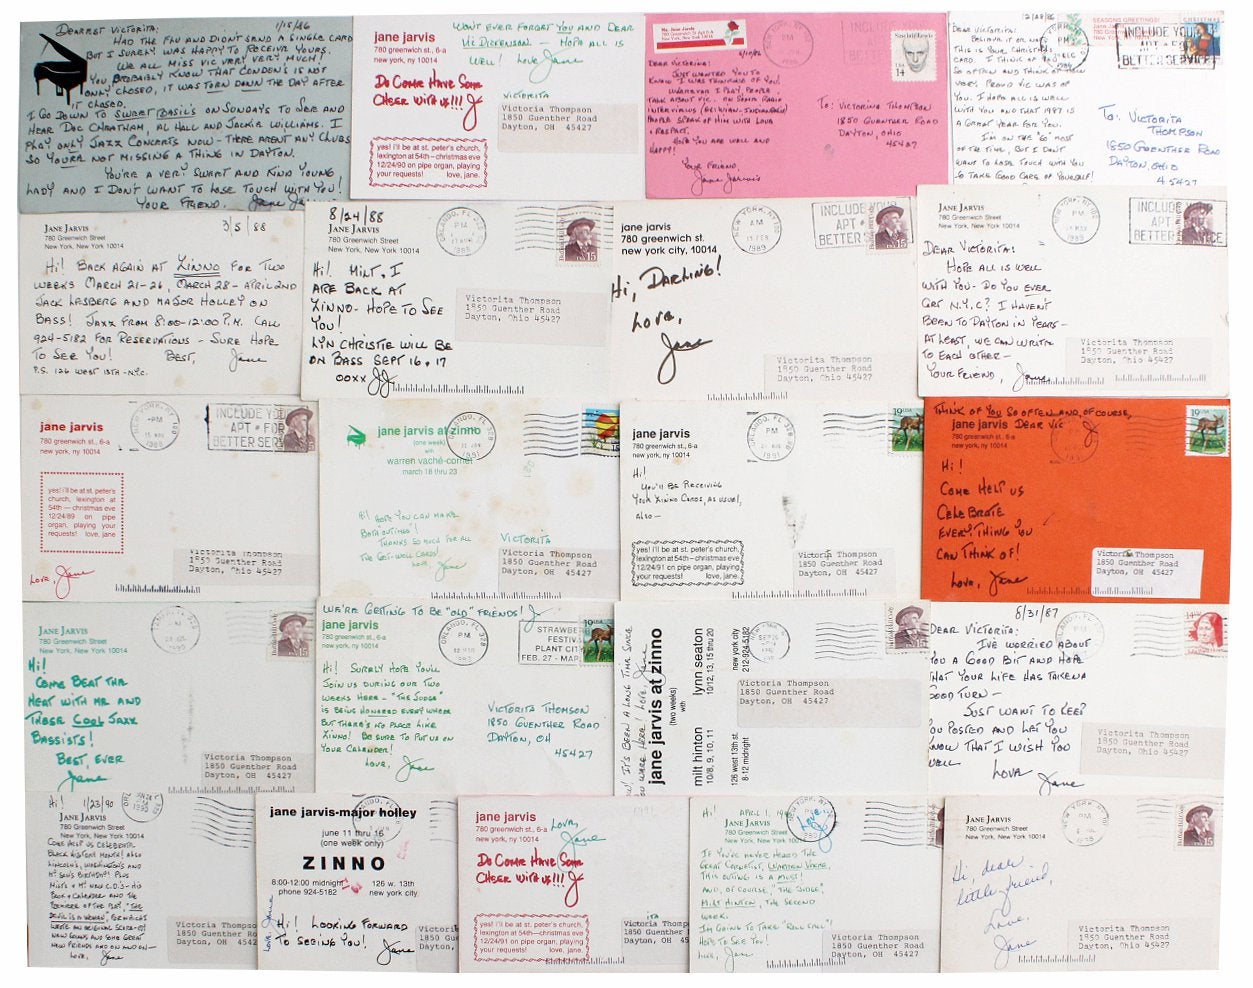 1/15/86
DEAREST VICTORITA:
HAD THE FLU AND DIDNT SEND A SINGLE CARD
BUT I SURELY WAS HAPPY TO RECEIVE YOURS.
WE ALL MISS VIC VERY VERY MUCH!
YOU PROBABLY KNOW THAT CONDON'S IS NOT
ONLY CLOSED, IT WAS TORN DOWN THE DAY AFTER
IT CLOSED.
I GO DOWN TO SWEET BASIL'S ON SUNDAYS TO SEE AND
HEAR DOC CHEATHAM, AL HALL AND JACKIE WILLIAMS. I
PLAY ONLY JAZZ CONCERTS NOW - THERE ARENT ANY CLUBS
SO YOU'RE NOT MISSING A THING IN DAYTON.
YOU'RE A VERY SWEET AND KIND YOUNG
LADY AND I DON'T WANT TO LOSE TOUCH WITH YOU!
YOUR FRIEND, Jane
WON'T EVER FORGET YOU AND DEAR
VIC DICKENSON - HOPE ALL IS
WELL! Love Jane
jane jarvis
780 greenwich st., 6-a
new york, ny 10014
DO COME HAVE SOME
CHEER WITH US!!! J
yes! i'll be at st. peter's church,
lexington at 54th - christmas eve
12/24/90 on pipe organ, playing
your requests! love, jane.
VICTORITA
Victoria Thompson
1850 Guenther Road
Dayton, OH 45427
Ms. Jane Jarvis
DEAR VICTORINA:
JUST WANTED YOU TO
KNOW I WAS THINKING OF YOU.
WHEREVER I PLAY, PEOPLE
TALK ABOUT VIC. ON SOME RADIO
PEOPLE SPEAK OF HIM WITH LOVE
& RESPECT.
HOPE YOU ARE WELL AND
HAPPY!
YOUR FRIEND,
Jane Jarvis
PM
INCLUDE
APT
BETTER
USA
14
TO: VICTORINA THOMPSON
1850 GUENTHER ROAD
DAYTON, OHIO
45427
12/18/86
SEASONS GREETINGS!
DEAR VICTORITA:
BELIEVE IT OR NOT
THIS IS YOUR CHRISTMAS
CARD. I THINK OF YOU
SO OFTEN AND THINK OF HOW
VERY PROUD VIC WAS OF
YOU. I HOPE ALL IS WELL
WITH YOU AND THAT 1987 IS
A GREAT YEAR FOR YOU.
I'M ON THE "GO" MOST
OF THE TIME, BUT I DON'T
WANT TO LOSE TOUCH WITH YOU
SO TAKE GOOD CARE OF YOURSELF!
INCLUDE YOUR
APT # FOR
BETTER SERVICE
TO: VICTORITA
THOMPSON
1850 GUENTHER ROAD
DAYTON, OHIO
45427
JANE JARVIS
780 Greenwich Street
New York, New York 10014
3/5/88
HI! BACK AGAIN AT ZINNO FOR TWO
WEEKS MARCH 21-26, MARCH 28 - APRIL 2ND
JACK LESBERG AND MAJOR HOLLEY ON
BASS! JAZZ FROM 8:00-12:00 P.M. CALL
924-5182 FOR RESERVATIONS - SURE HOPE
TO SEE YOU! BEST, Jane
P.S. 126 WEST 13TH - N.Y.C.
8/24/88
JANE JARVIS
780 Greenwich Street
New York, New York 10014
HI! MILT, I
ARE BACK AT
ZINNO - HOPE TO SEE
YOU!
LYN CHRISTIE WILL BE
ON BASS SEPT 16, 17
OOXX JJ
Victorita Thompson
1850 Guenther Road
Dayton, Ohio 45427
jane jarvis
780 greenwich st.
new york city, 10014
Hi, DARLING!
Love,
Jane
NEW YORK, NY
AM
15 FEB
1989
INCLUDE YOUR
APT #
BETTER S
Victoria Thompson
1850 Guenther Road
Dayton, Ohio 45427
JANE JARVIS
780 Greenwich Street
New York, New York 10014
DEAR VICTORITA:
HOPE ALL IS WELL
WITH YOU - DO YOU EVER
GET N.Y.C? I HAVEN'T
BEEN TO DAYTON IN YEARS -
AT LEAST, WE CAN WRITE
TO EACH OTHER -
YOUR FRIEND, Jane
PM
MAY
1989
INCLUDE
APT #
BETTER
Victoria Thompson
1850 Guenther Road
Dayton, Ohio 45427
jane jarvis
780 greenwich st., 6-a
new york, ny 10014
yes! i'll be at st. peter's
church, lexington at
54th - christmas eve
12/24/89 on pipe
organ, playing your
requests! love, jane.
LOVE, Jane
NEW YORK, NY 100
PM
1989
INCLUDE YOUR
APT # FOR
BETTER SERV
Victoria Thompson
1850 Guenther Road
Dayton, Ohio 45427
jane jarvis at zinno
(one week)
with
warren vaché-cornet
march 18 thru 23
HI! HOPE YOU CAN MAKE
BOTH OUTINGS!
THANKS SO MUCH FOR ALL
THE GET-WELL CARDS!
LOVE, Jane
ORLANDO, FL
JAN
1991
VICTORITA
Victoria Thompson
1850 Guenther Road
Dayton, OH 45427
jane jarvis
780 greenwich st., 6-a
new york, ny 10014
HI!
YOU'LL BE RECEIVING
YOUR ZINNO CARDS, AS USUAL,
ALSO -
yes! i'll be at st. peter's church,
lexington at 54th - christmas eve
12/24/91 on pipe organ, playing
your requests! love, jane.
ORLANDO, FL 328
PM
1991
19 USA
Victoria Thompson
1850 Guenther Road
Dayton, OH 45427
THINK OF YOU SO OFTEN AND, OF COURSE,
DEAR VIC J
jane jarvis
780 greenwich st., 6-a
new york, ny 10014
HI!
COME HELP US
CELEBRATE
EVERYTHING YOU
CAN THINK OF!
LOVE, Jane
1991
19 USA
Victoria Thompson
1850 Guenther Road
Dayton, OH 45427
JANE JARVIS
780 Greenwich Street
New York, New York 10014
HI!
COME BEAT THE
HEAT WITH ME AND
THESE COOL JAZZ
BASSISTS!
BEST, EVER
Jane
Victoria Thompson
1850 Guenther Road
Dayton, OH 45427
WE'RE GETTING TO BE "OLD" FRIENDS! J
jane jarvis
780 greenwich st., 6-a
new york, ny 10014
HI! SURELY HOPE YOU'LL
JOIN US DURING OUR TWO
WEEKS HERE - "THE JUDGE"
IS BEING HONORED EVERYWHERE
BUT THERE'S NO PLACE LIKE
ZINNO! BE SURE TO PUT US ON
YOUR CALENDAR!
LOVE, Jane
ORLANDO, FL 328
PM
STRAWBE
FESTIV
PLANT CITY
FEB. 27 - MAR.
19 USA
VICTORITA THOMSON
1850 GUENTHER ROAD
DAYTON, OH
45427
IT'S BEEN A LONG TIME SINCE
YOU WERE HERE! LOVE, Jane
jane jarvis at zinno
(two weeks)
with
milt hinton
10/8, 9, 10, 11
lynn seaton
10/12, 13, 15 thru 20
126 west 13th st.
8-12 midnight
new york city
212-924-5182
Victoria Thompson
1850 Guenther Road
Dayton, OH 45427
8/31/87
DEAR VICTORITA:
I'VE WORRIED ABOUT
YOU A GOOD BIT AND HOPE
THAT YOUR LIFE HAS TAKEN A
GOOD TURN -
JUST WANT TO KEEP
YOU POSTED AND LET YOU
KNOW THAT I WISH YOU
WELL
LOVE
Jane
Victoria Thompson
1850 Guenther Road
Dayton, OH 45427
HI! 1/23/90
JANE JARVIS
780 Greenwich Street
New York, New York 10014
COME HELP US CELEBRATE
BLACK HISTORY MONTH! ALSO
LINCOLN'S, WASHINGTON'S AND
MY SON'S BIRTHDAY! PLUS
MILT'S & MY NEW C.D.'S - HIS
BOOK & CALENDER AND THE
PREMIERE OF THE PLAY, "THE
DEVIL IS A WOMAN", FOR WHICH I
WROTE AN ORIGINAL SCORE - ETC
NEW SONGS AND SOME GREAT
NEW FRIENDS AND ON AND ON -
LOVE, Jane
Victoria Thompson
1850 Guenther Road
Dayton, OH 45427
jane jarvis-major holley
june 11 thru 16
(one week only)
ZINNO
8:00-12:00 midnight
phone 924-5182
126 w. 13th
new york city
HI! LOOKING FORWARD
TO SEEING YOU! Jane
LOVE, Jane
Victoria
1850
Dayton
jane jarvis
780 greenwich st., 6-a
new york, ny 10014
1991
LOVE,
Jane
DO COME HAVE SOME
CHEER WITH US!!! J
yes! i'll be at st. peter's church,
lexington at 54th - christmas eve
12/24/91 on pipe organ, playing
your requests! love, jane.
Victoria Thompson
1850 Guenther
Dayton, OH
HI! APRIL 1,
JANE JARVIS
780 Greenwich Street
New York, New York 10014
Love,
J
IF YOU'VE NEVER HEARD THE
GREAT CORNETIST, WARREN VACHE,
THIS OUTING IS A MUST!
AND, OF COURSE, "THE JUDGE",
MILT HINTON, THE SECOND
WEEK.
I'M GOING TO TAKE "ROLL CALL"
HOPE TO SEE YOU!
LOVE, Jane
Victoria Thompson
1850 Guenther Road
Dayton, OH 45427
JANE JARVIS
780 Greenwich Street
New York, New York 10014
Hi, dear
little friend,
Love,
Jane
Victoria Thompson
1850 Guenther Road
Dayton, OH 45427